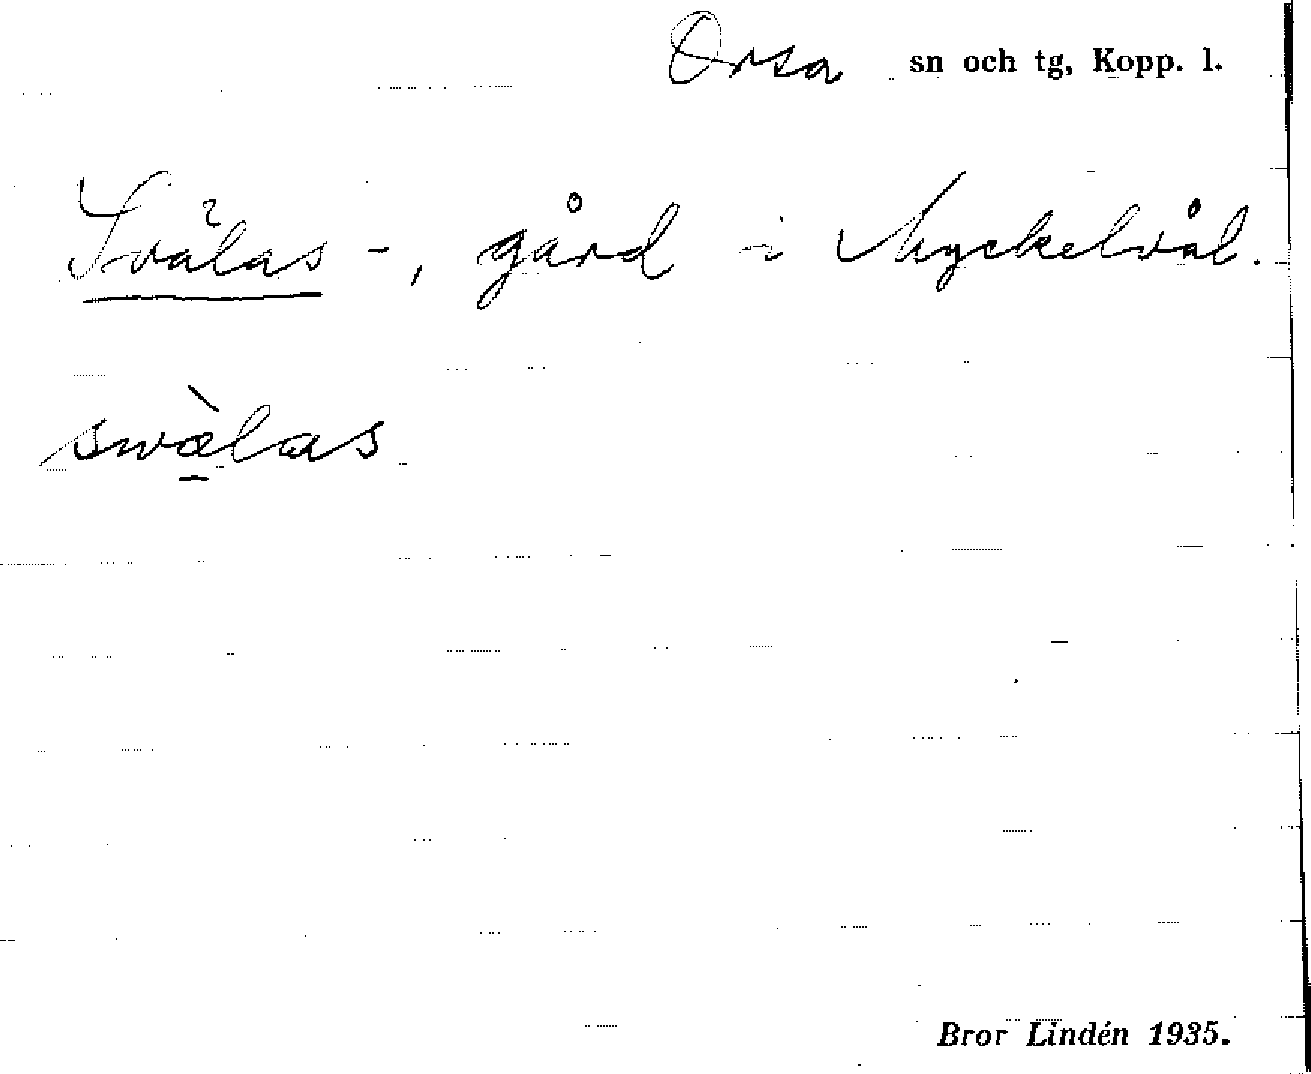 Orsa sn och tg, Kopp. l.
Svälas -, gård i Myckelvål.
swæ̠̀las
Bror Lindén 1935.